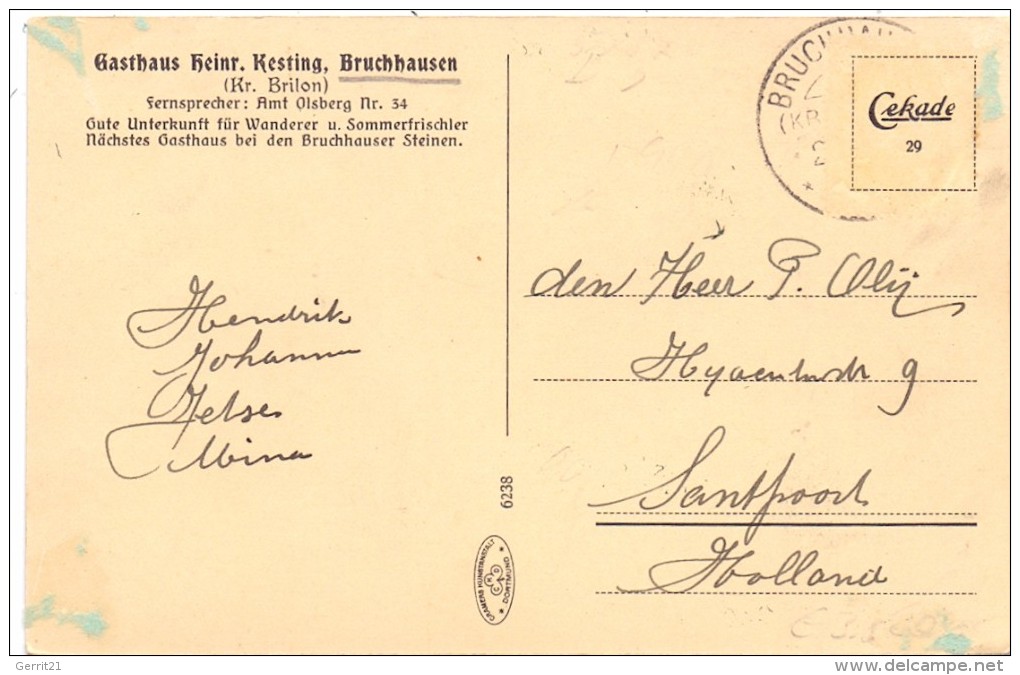 Gasthaus Heinr. Kesting, Bruchhausen
(Kr. Brilon)
Fernsprecher: Amt Olsberg Nr. 34
Gute Unterkunft für Wanderer u. Sommerfrischler
Nächstes Gasthaus bei den Bruchhauser Steinen.
BRUCHHAU
(KR
Cekade
29
Hendrik
Johanna
Jelse
Mina
den Heer P. Olij
Hyacinthstr 9
Santpoort
Holland
6238
CRAMERS KUNSTANSTALT
CKD
* DORTMUND *
€ 3.50
Gerrit21
www.delcampe.net